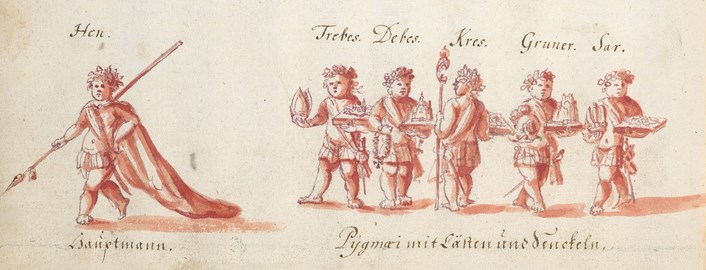 Hen.
Trebes. Debes. Kres. Gruner. Sar.
Hauptmann.
Pÿgmæi mit Cästen und Fenckeln.